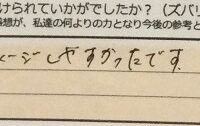 けられていかがでしたか？（ズバリ
感想が、私達の何よりの力となり今後の参考と
ージしやすかったです。